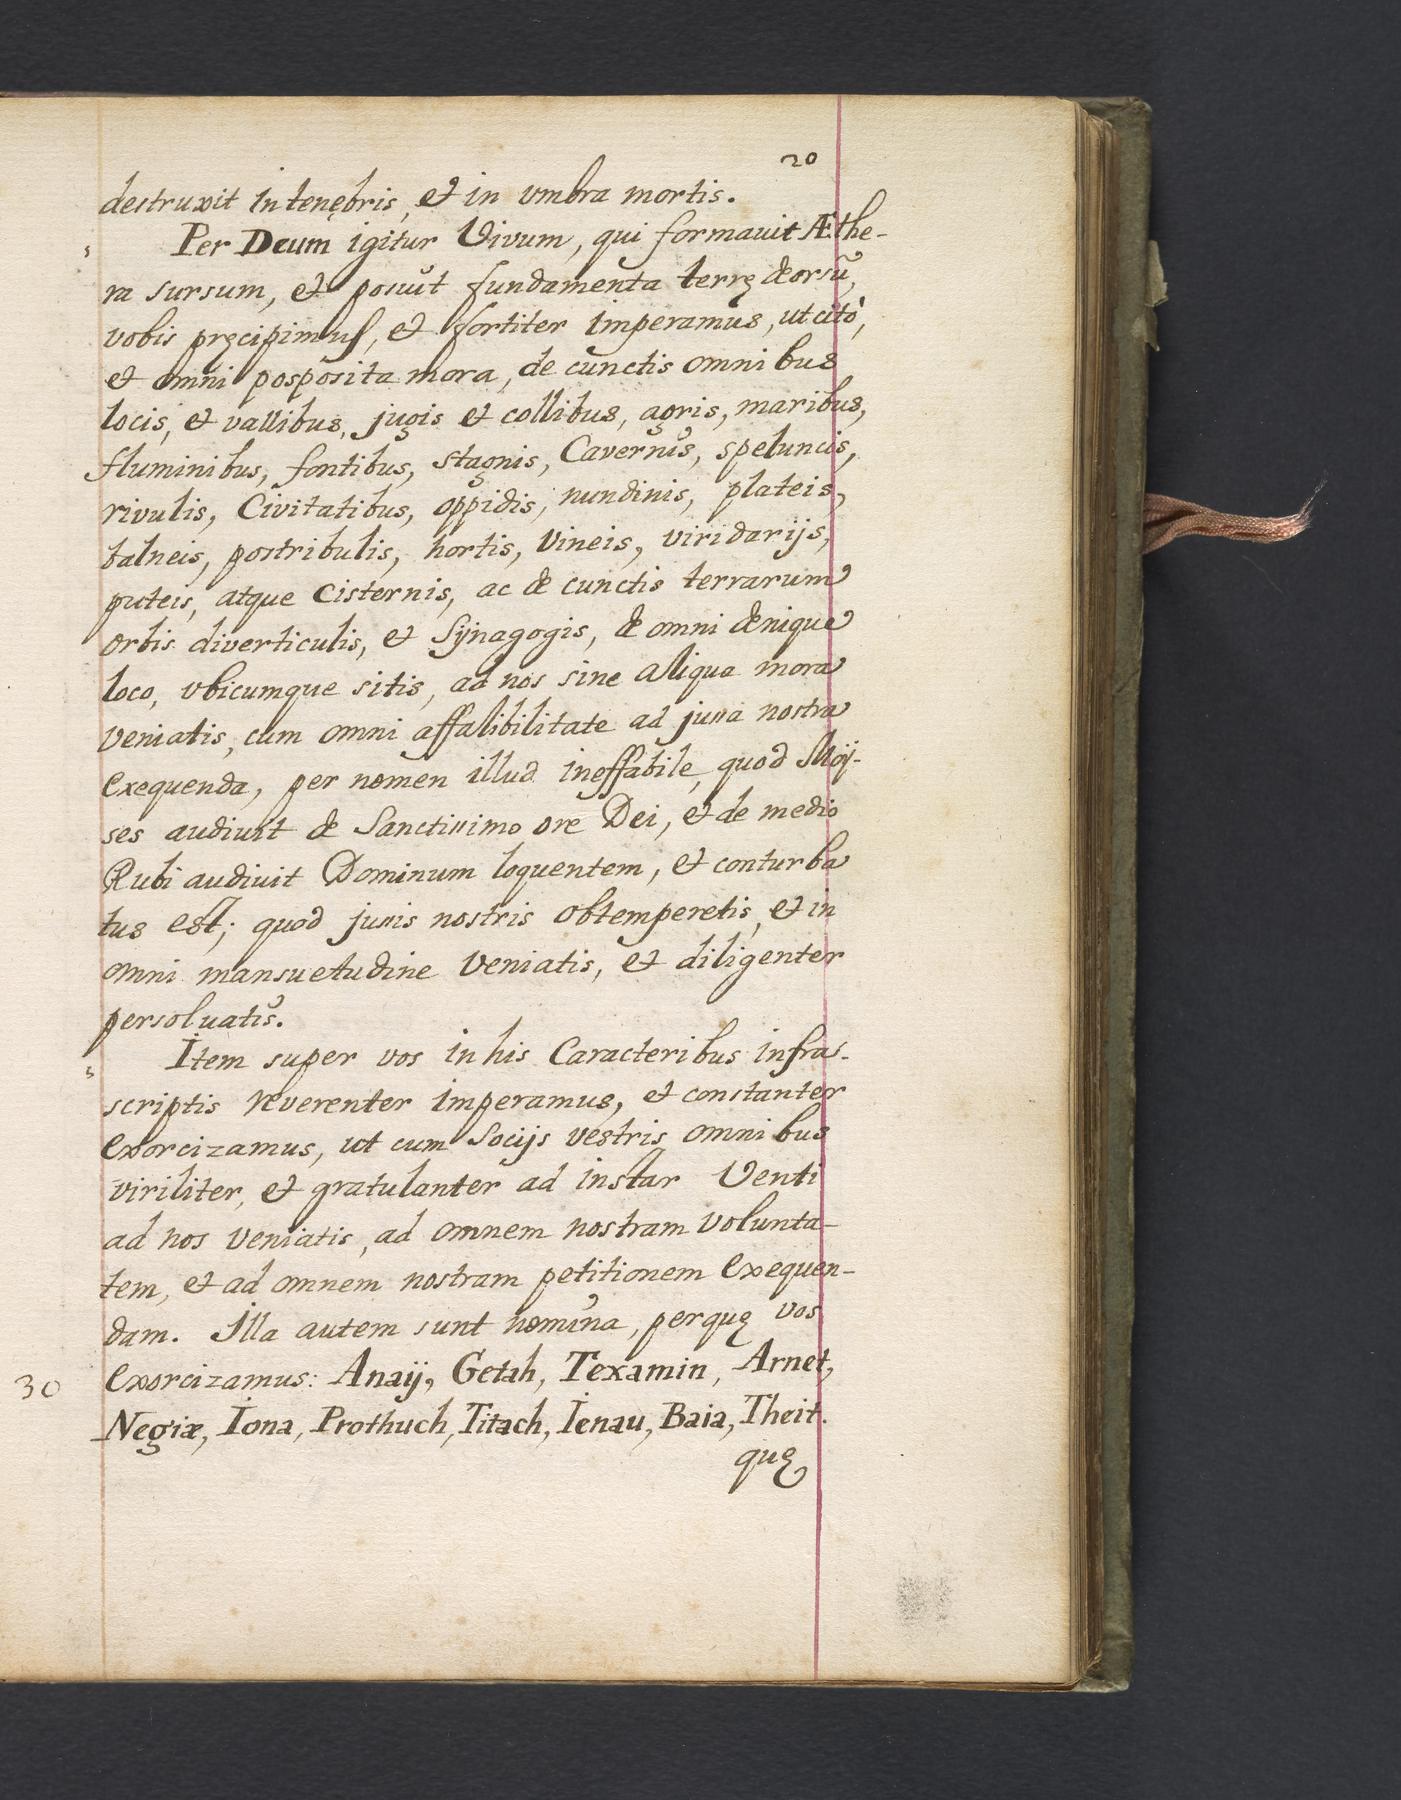 20
destruxit in tenębris, et in vmbra mortis.
Per Deum igitur Vivum, qui formauit Æthe-
ra sursum, et posuit fundamenta terrę deorsū,
vobis pręcipimus, et fortiter imperamus, ut citò,
et omni posposita mora, de cunctis omnibus
locis, et vallibus, jugis et collibus, agris, maribus,
fluminibus, fontibus, stagnis, Cavernis, speluncis,
rivulis, Civitatibus, oppidis, nundinis, plateis,
balneis, postribulis, hortis, Vineis, viridarijs,
puteis, atque Cisternis, ac de cunctis terrarum
orbis diverticulis, et Synagogis, de omni denique
loco, vbicumque sitis, ad nos sine aliqua mora
veniatis, cum omni affalibilitate ad jussa nostra
exequenda, per nomen illud ineffabile, quod Moÿ-
ses audiuit de Sanctissimo ore Dei, et de medio
Rubi audiuit Dominum loquentem, et conturba
tus est; quod jussis nostris obtemperetis, et in
omni mansuetudine veniatis, et diligenter
persoluatis.
Item super vos in his Caracteribus infras-
scriptis reverenter imperamus, et constanter
exorcizamus, ut cum Socijs vestris omnibus
viriliter, et gratulanter ad instar Venti
ad nos veniatis, ad omnem nostram volunta-
tem, et ad omnem nostram petitionem exequen-
dam. Illa autem sunt nomina, per quę vos
30 exorcizamus: Anaij, Getah, Texamin, Arnet,
Negiæ, Iona, Prothuch, Titach, Ienau, Baia, Theit.
quę